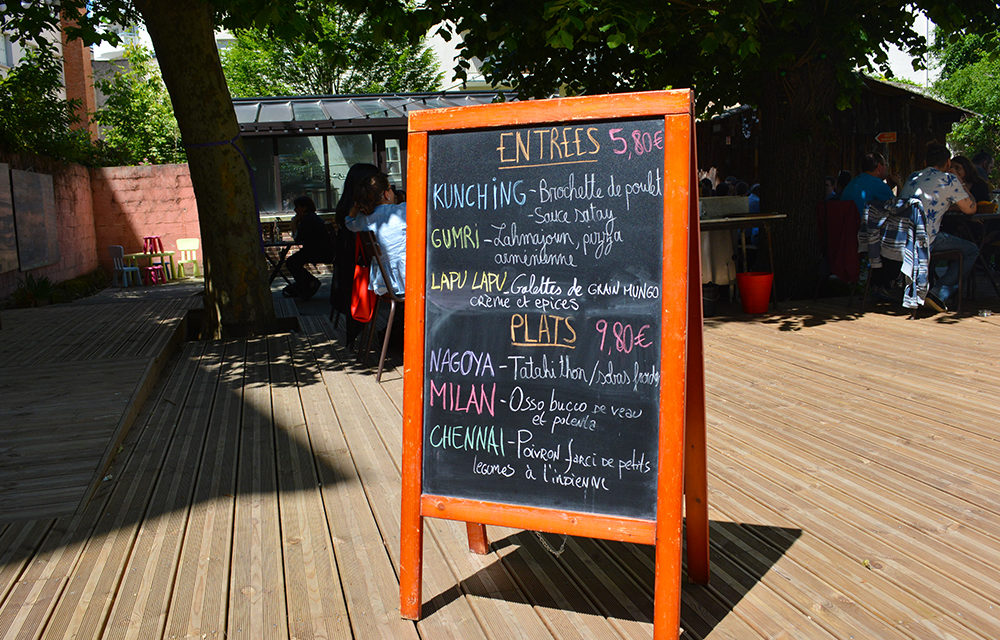 ENTRÉES 5,80€
KUNCHING - Brochette de poulet
- Sauce satay
GUMRI - Lahmajoun, pizza
armenienne
LAPU LAPU - Galettes de GRAIN MUNGO
crème et épices
PLATS 9,80€
NAGOYA - Tatakithon / sobas froides
MILAN - Osso bucco de veau
et polenta
CHENNAI - Poivron farci de petits
légumes à l'indienne